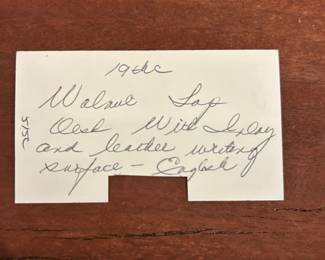 19th c
Walnut Lap
Desk With Inlay
and leather writing
surface - English